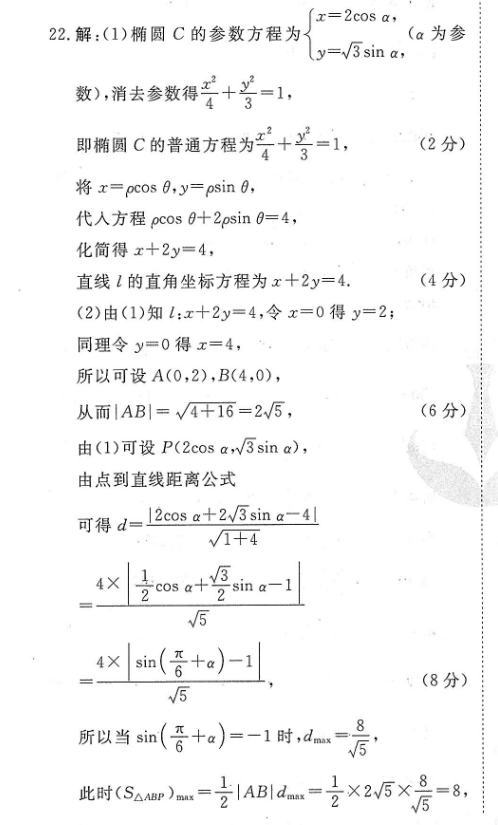 22.解:(1)椭圆 C 的参数方程为{x=2cos α, y=√3 sin α, (α 为参
数),消去参数得x²/4+y²/3=1,
即椭圆 C 的普通方程为x²/4+y²/3=1, (2 分)
将 x=ρcos θ,y=ρsin θ,
代入方程 ρcos θ+2ρsin θ=4,
化简得 x+2y=4,
直线 l 的直角坐标方程为 x+2y=4. (4 分)
(2)由(1)知 l:x+2y=4,令 x=0 得 y=2;
同理令 y=0 得 x=4,
所以可设 A(0,2),B(4,0),
从而|AB|=√(4+16)=2√5, (6 分)
由(1)可设 P(2cos α,√3 sin α),
由点到直线距离公式
可得 d=|2cos α+2√3 sin α-4|/√(1+4)
=4×|1/2 cos α+√3/2 sin α-1|/√5
=4×|sin(π/6+α)-1|/√5, (8 分)
所以当 sin(π/6+α)=-1 时,dmax=8/√5,
此时(S△ABP)max=1/2|AB|dmax=1/2×2√5×8/√5=8,